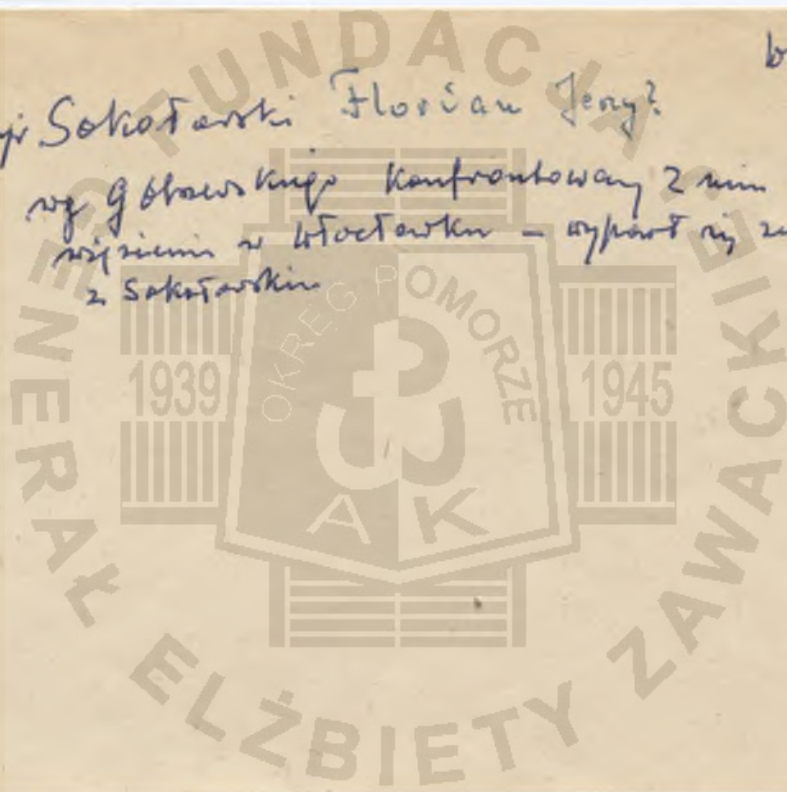 b
Sokołowski Florian Jerzy?
wg konfrontowany z nim
więzieniu w Włocławku – wyparł się
z Sokołowskim
FUNDACJA
GENERAŁ ELŻBIETY ZAWACKIEJ
OKRĘG POMORZE
1939 1945
AK